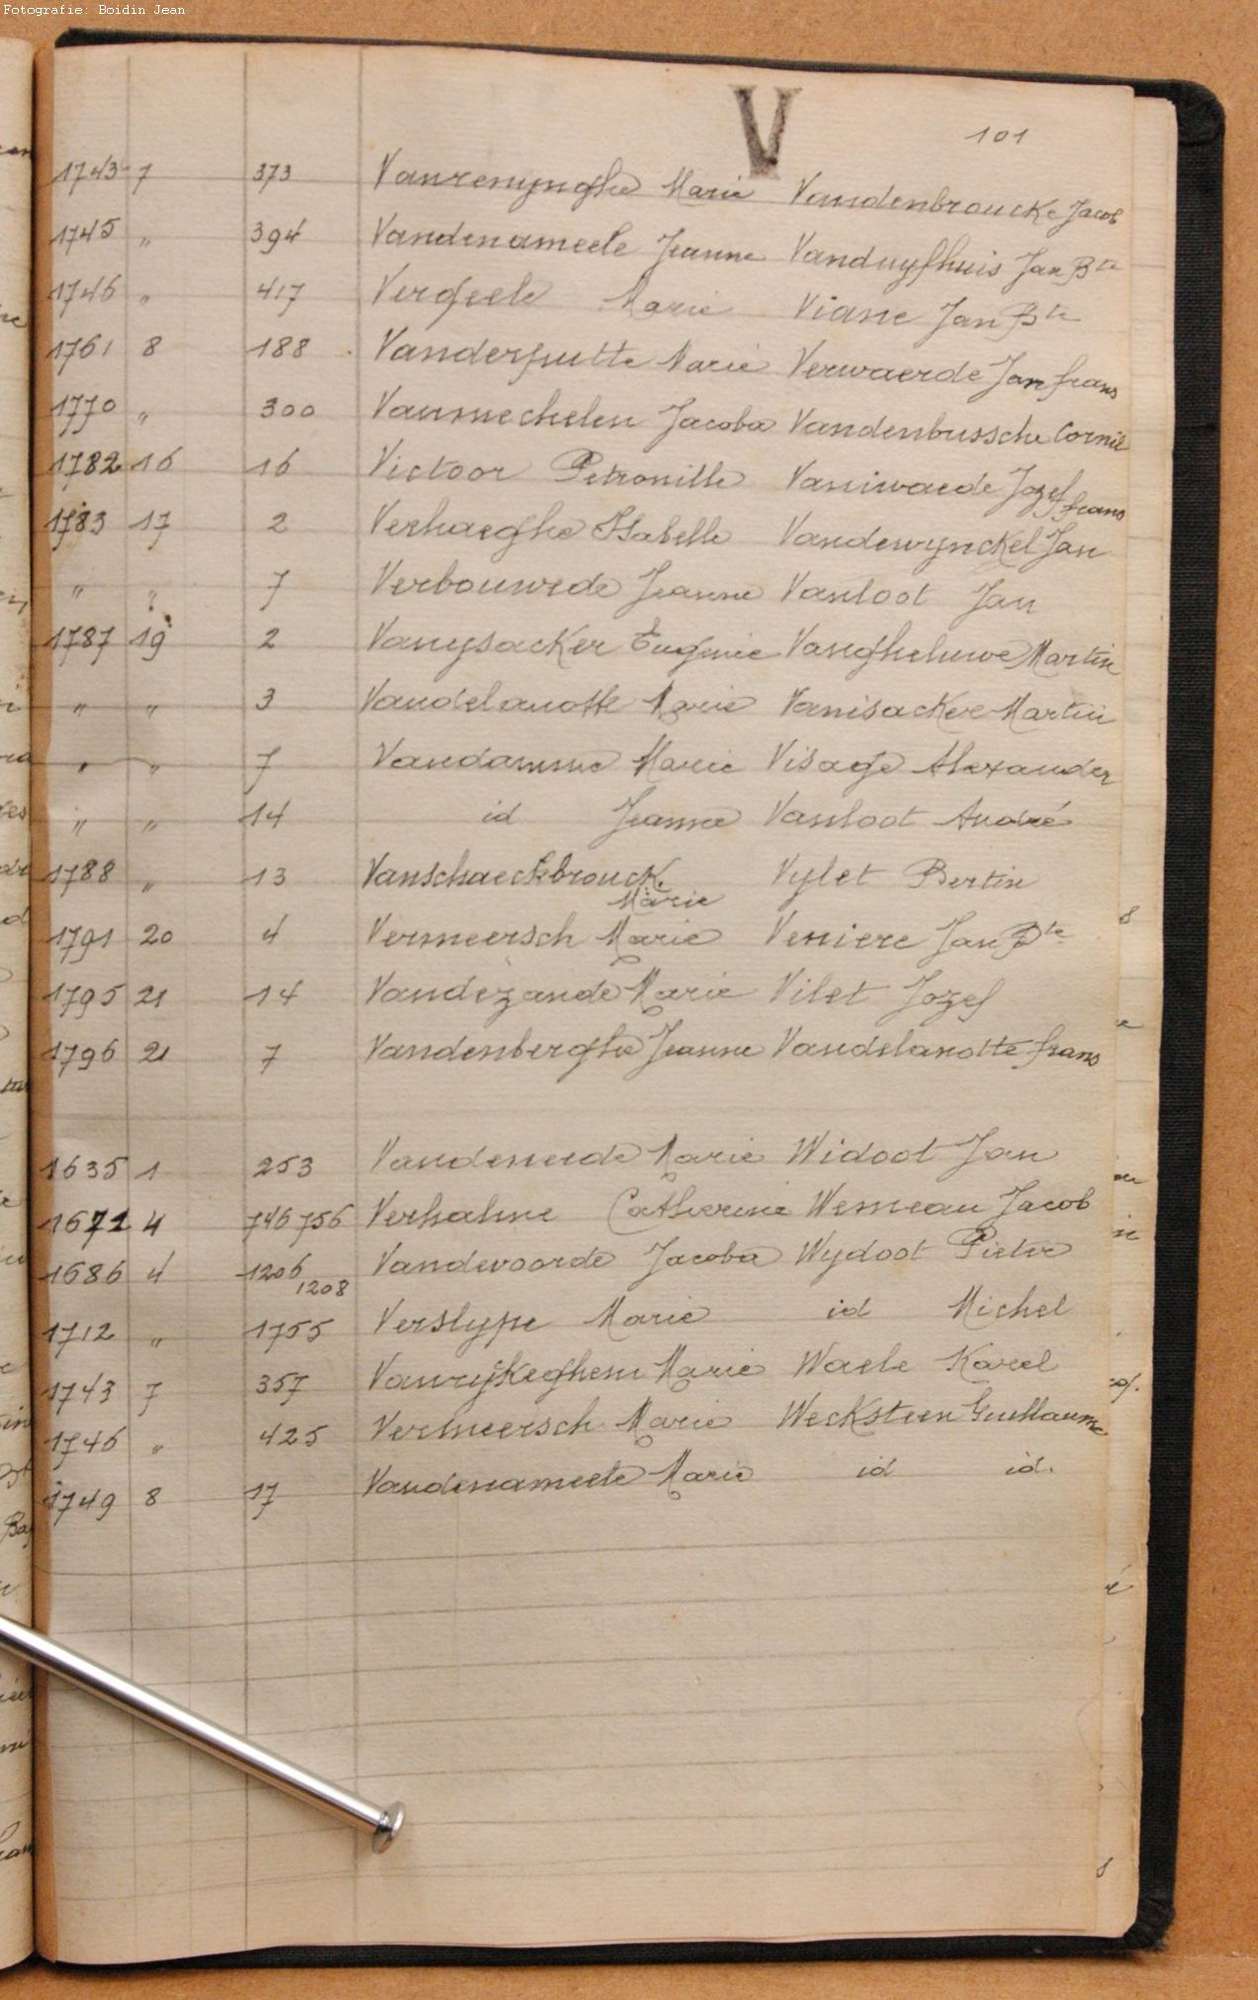 Fotografie: Boidin Jean
V
101
1743 7 373 Vanrenynghe Marie Vandenbroucke Jacob
1745 " 394 Vandenameele Jeanne Vanduyfhuis Jan Bte
1746 " 417 Vergeele Marie Viane Jan Bte
1761 8 188 Vanderputte Marie Verwaerde Jan frans
1770 " 300 Vanmechelen Jacoba Vandenbussche Cornil
1782 16 16 Victoor Petronille Vaniwaede Jozef frans
1783 17 2 Verhaeghe Isabelle Vandewynckel Jan
" " 7 Verbouwede Jeanne Vanloot Jan
1787 19 2 Vanysacker Eugenie Vangheluwe Martin
" " 3 Vandelanotte Marie Vanisacker Martin
" " 7 Vandamme Marie Visage Alexander
" " 14 id Jeanne Vanloot André
1788 " 13 Vanschaeckebrouck Vylet Bertin
Marie
1791 20 4 Vermeersch Marie Veniere Jan Bte
1795 21 14 Vandezande Marie Vilet Jozef
1796 21 7 Vandenberghe Jeanne Vandelanotte frans
1635 1 253 Vandeneede Marie Widoot Jan
1671 4 746 756 Verhahne Catherine Wemeau Jacob
1686 4 1206 1208 Vandevoorde Jacoba Wydoot Pieter
1712 " 1755 Verslype Marie id Michel
1743 7 357 Vanryckeghem Marie Waele Karel
1746 " 425 Vermeersch Marie Wecksteen Guillaume
1749 8 17 Vandenameele Marie id id.